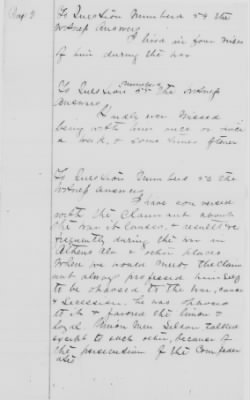 Page 3
To Question Numberd 54 the
witness answers
I lived in four miles
of him during the war
To Question Numberd 55 the witness
answers
I nearly ever missed
being with him once or twice
a week, & some times oftener
To Question Numberd 56 the
witness answers,
I have conversed
with the Claimant about
the war its causes, & results fre
quently during the war in
Athens Ala & other places
When we would meet, the Claim
ant always professed himself
to be opposed to the war, cause
& Secession. he was opposed
to it & favored the Union &
loyal Union Men Seldom talked
except to each other, because of
the persecution of the Confeder
ate